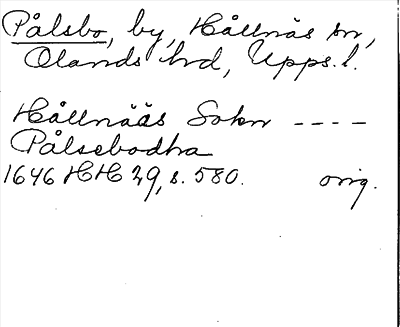 Pålsbo, by, Hållnäs sn,
Olands hd, Upps. l.
Hållnääs Sokn ----
Pålsebodha
1646 HH 29, s. 580. orig.